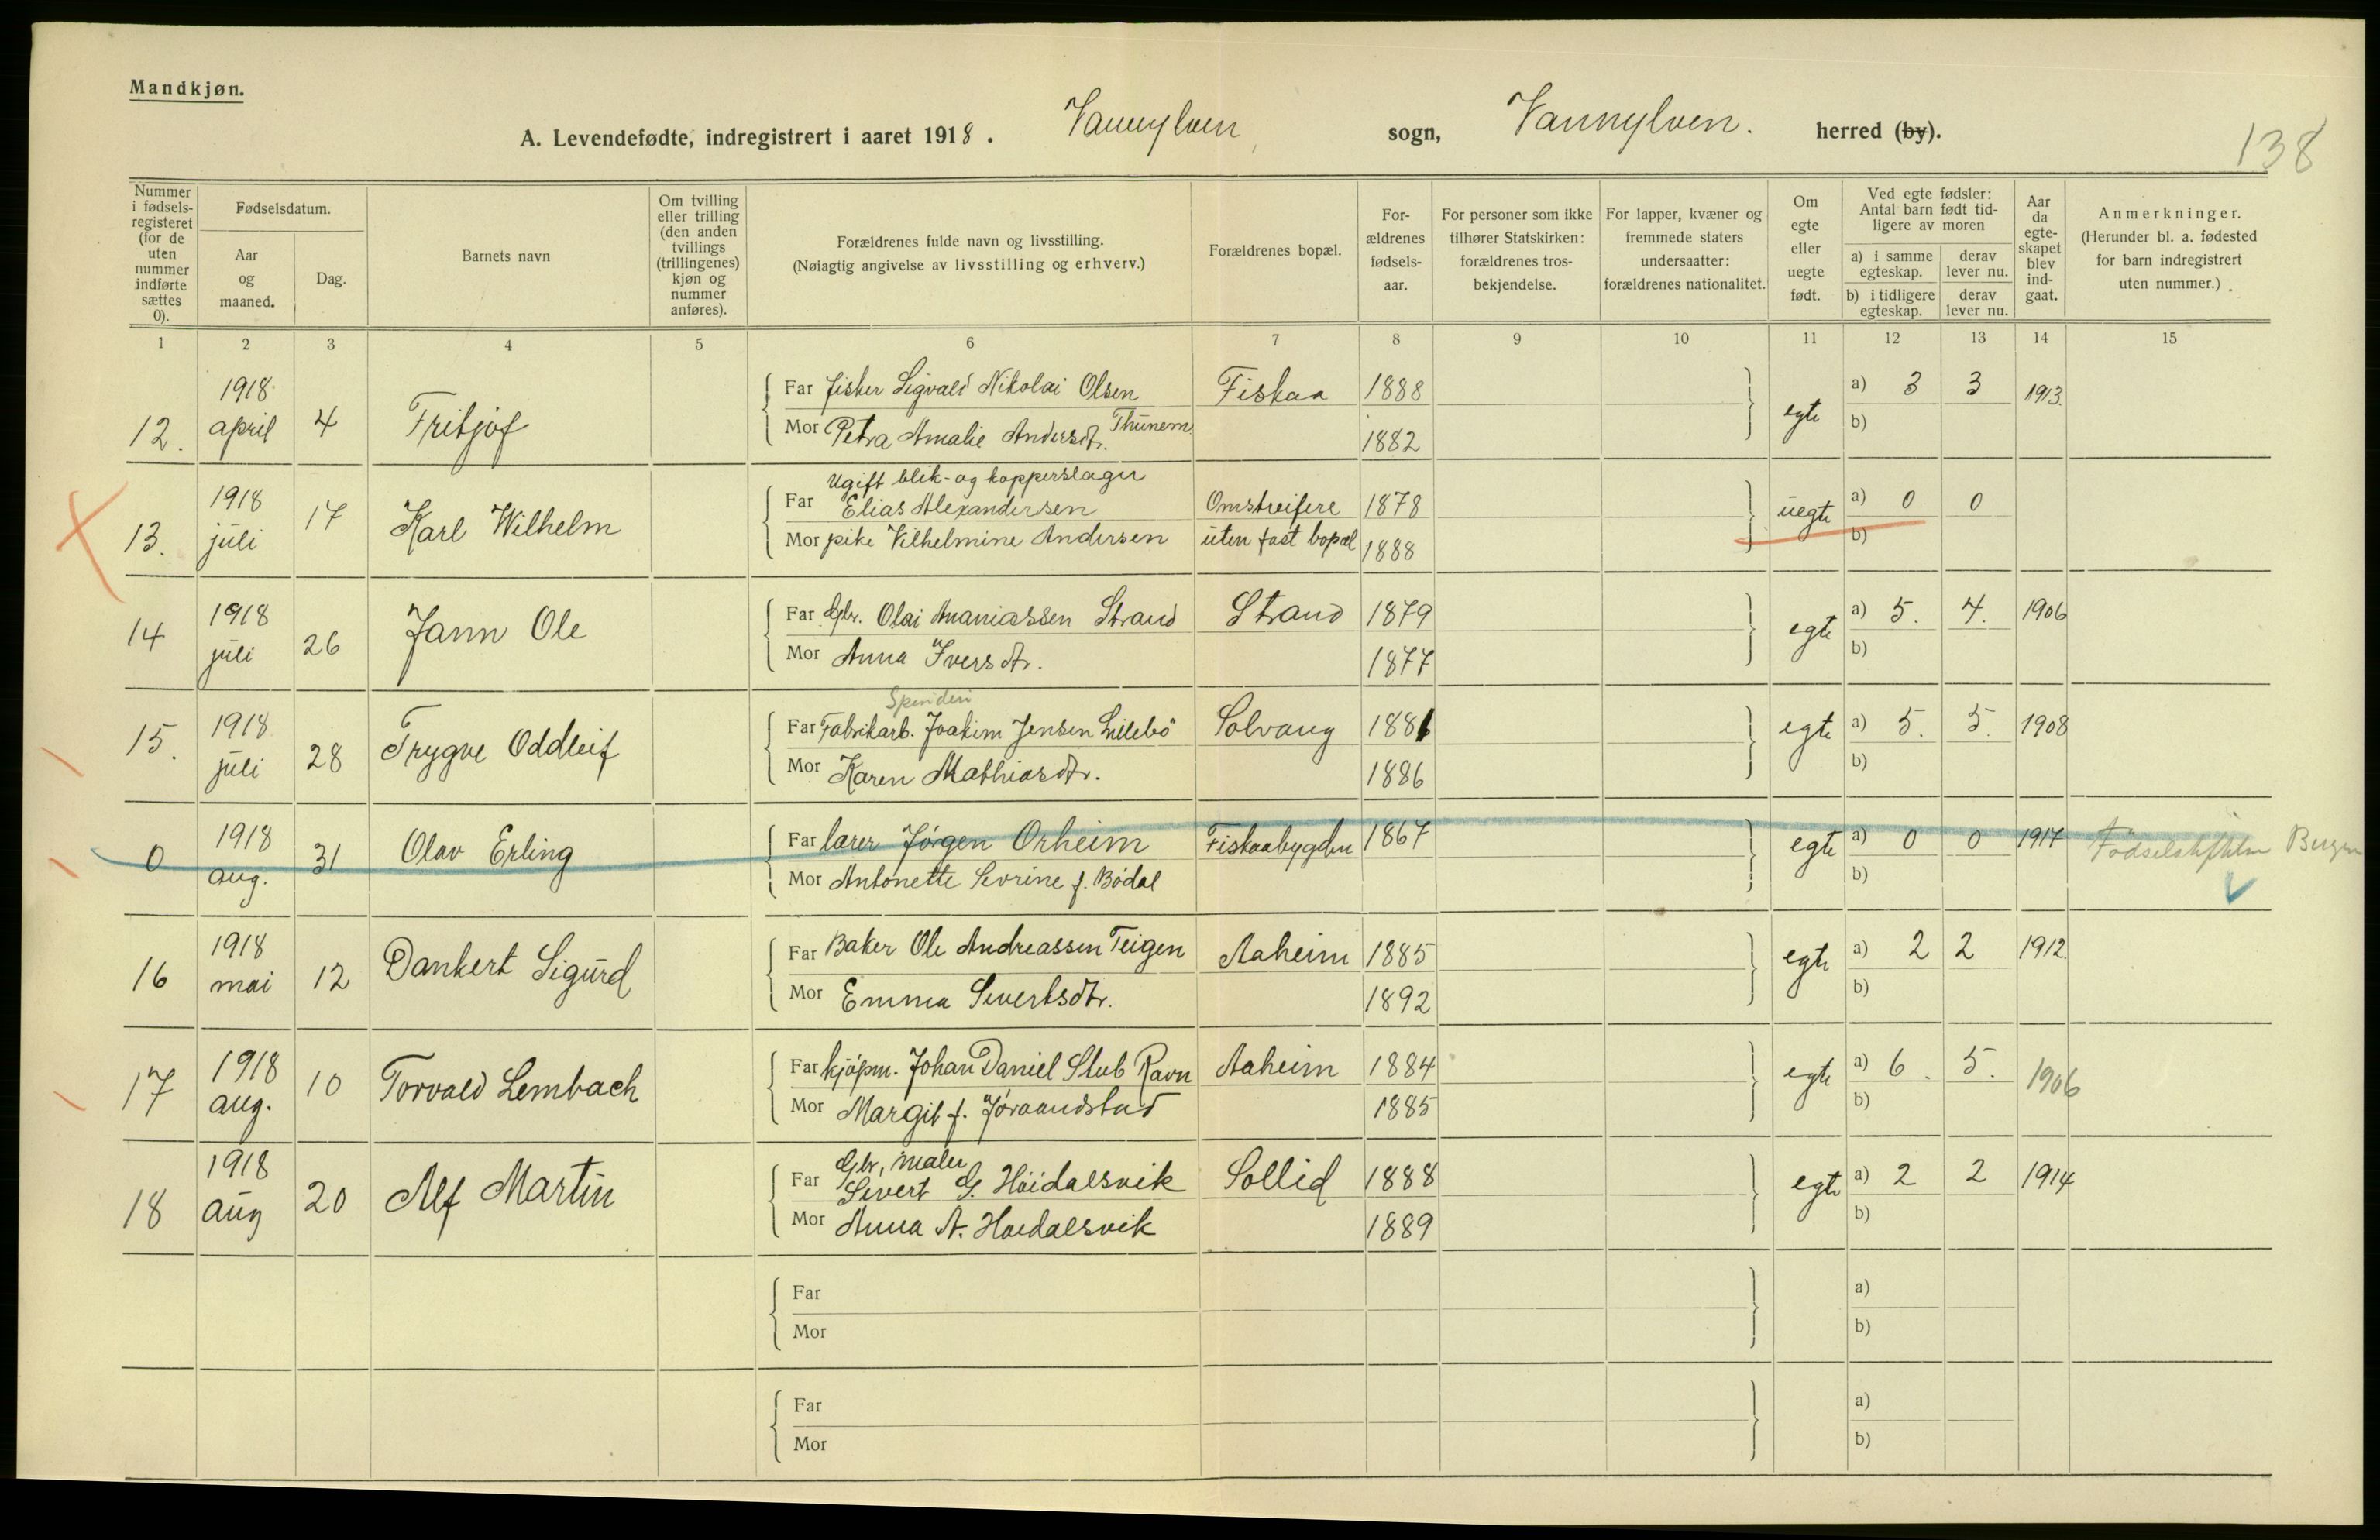 Mandkjøn.
A. Levendefødte, indregistrert i aaret 1918. Vannylven sogn, Vannylven. herred (by).
138
Nummer i fødselsregisteret (for de uten nummer indførte sættes 0).
Fødselsdatum.
Aar og maaned.
Dag.
Barnets navn
Om tvilling eller trilling (den anden tvillings (trillingenes) kjøn og nummer anføres).
Forældrenes fulde navn og livsstilling.
(Nøiagtig angivelse av livsstilling og erhverv.)
Forældrenes bopæl.
Forældrenes fødselsaar.
For personer som ikke tilhører Statskirken: forældrenes trosbekjendelse.
For lapper, kvæner og fremmede staters undersaatter: forældrenes nationalitet.
Om egte eller uegte født.
Ved egte fødsler: Antal barn født tidligere av moren
a) i samme egteskap.
derav lever nu.
b) i tidligere egteskap.
derav lever nu.
Aar da egteskapet blev indgaat.
Anmerkninger.
(Herunder bl. a. fødested for barn indregistrert uten nummer.)
1 2 3 4 5 6 7 8 9 10 11 12 13 14 15
12. 1918 april 4 Fritjof
Far fisker Sigvald Nikolai Olsen Fiskaa 1888 egte a) 3 3 1913.
Mor Petra Amalie Andersdtr. Thunem 1882 b)
13. 1918 juli 17 Karl Wilhelm
Ugift blik- og kopperslager
Far Elias Alexandersen Omstreifere 1878 uegte a) 0 0
Mor pike Vilhelmine Andersen uten fast bopæl 1888 b)
14 1918 juli 26 Jann Ole
Far Gbr. Olai Ananiassen Strand Strand 1879 egte a) 5. 4. 1906
Mor Anna Iversdtr. 1877 b)
15. 1918 juli 28 Trygve Oddleif
Spinderi
Far Fabrikarb. Joakim Jensen Lillebö Solvang 1881 egte a) 5. 5. 1908
Mor Karen Mathiasdtr. 1886 b)
0 1918 aug. 31 Olav Erling
Far lærer Jörgen Orheim Fiskaabygden 1867 egte a) 0 0 1917 Bergen
Mor Antonette Sevrine f. Bödal b)
16 1918 mai 12 Dankert Sigurd
Far Baker Ole Andreassen Teigen Aaheim 1885 egte a) 2 2 1912.
Mor Emma Sivertsdtr. 1892 b)
17 1918 aug. 10 Torvald Lembach
Far kjöpm. Johan Daniel Stub Ravn Aaheim 1884 egte a) 6. 5. 1906
Mor Margit f. Jöraandstad 1885 b)
18 1918 aug 20 Alf Martin
Gbr, maler
Far Sivert G. Höidalsvik Sollid 1888 egte a) 2 2 1914
Mor Anna A. Hoidalsvik 1889 b)
Far a)
Mor b)
Far a)
Mor b)